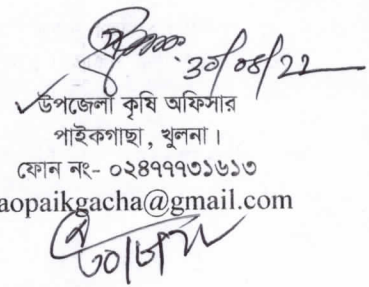 ৩০/০৪/২২
উপজেলা কৃষি অফিসার
পাইকগাছা, খুলনা।
ফোন নং- ০২৪৭৭৭৩১৬১৩
aopaikgacha@gmail.com